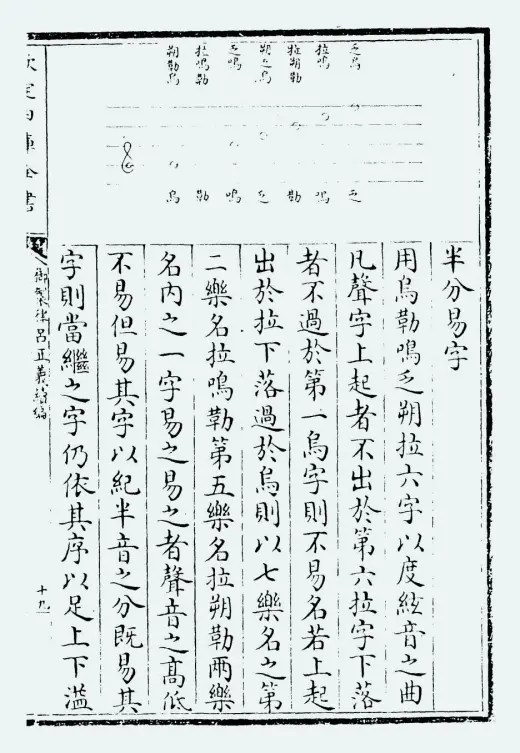 乏烏
拉鳴
拉朔勒
朔乏烏
乏鳴
拉鳴勒
朔勒烏
乏
鳴
勒
乏
鳴
勒
烏
半分易字
用烏勒鳴乏朔拉六字以度絃音之曲
凡聲字上起者不出於第六拉字下落
者不過於第一烏字則不易名若上起
出於拉下落過於烏則以七樂名之第
二樂名拉鳴勒第五樂名拉朔勒兩樂
名內之一字易之易之者聲音之髙低
不易但易其字以紀半音之分既易其
字則當繼之字仍依其序以足上下溢
欽定四庫全書
御製律呂正義續編
十九